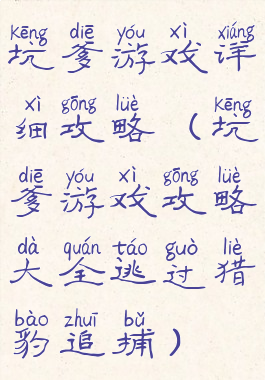 kēng diē yóu xì xiáng
坑爹游戏详
xì gōng lüè kēng
细攻略（坑
diē yóu xì gōng lüè
爹游戏攻略
dà quán táo guò liè
大全逃过猎
bào zhuī bǔ
豹追捕）